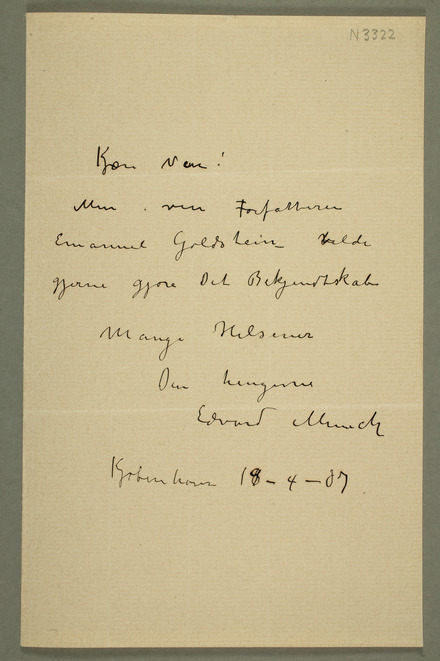 N3322
Kjære Ven!
Min ven Forfatteren
Emanuel Goldstein vilde
gjerne gjøre Dit Bekjendtskab
Mange Hilsener
Din hengivne
Edvard Munch
Kjøbenhavn 18-4-89